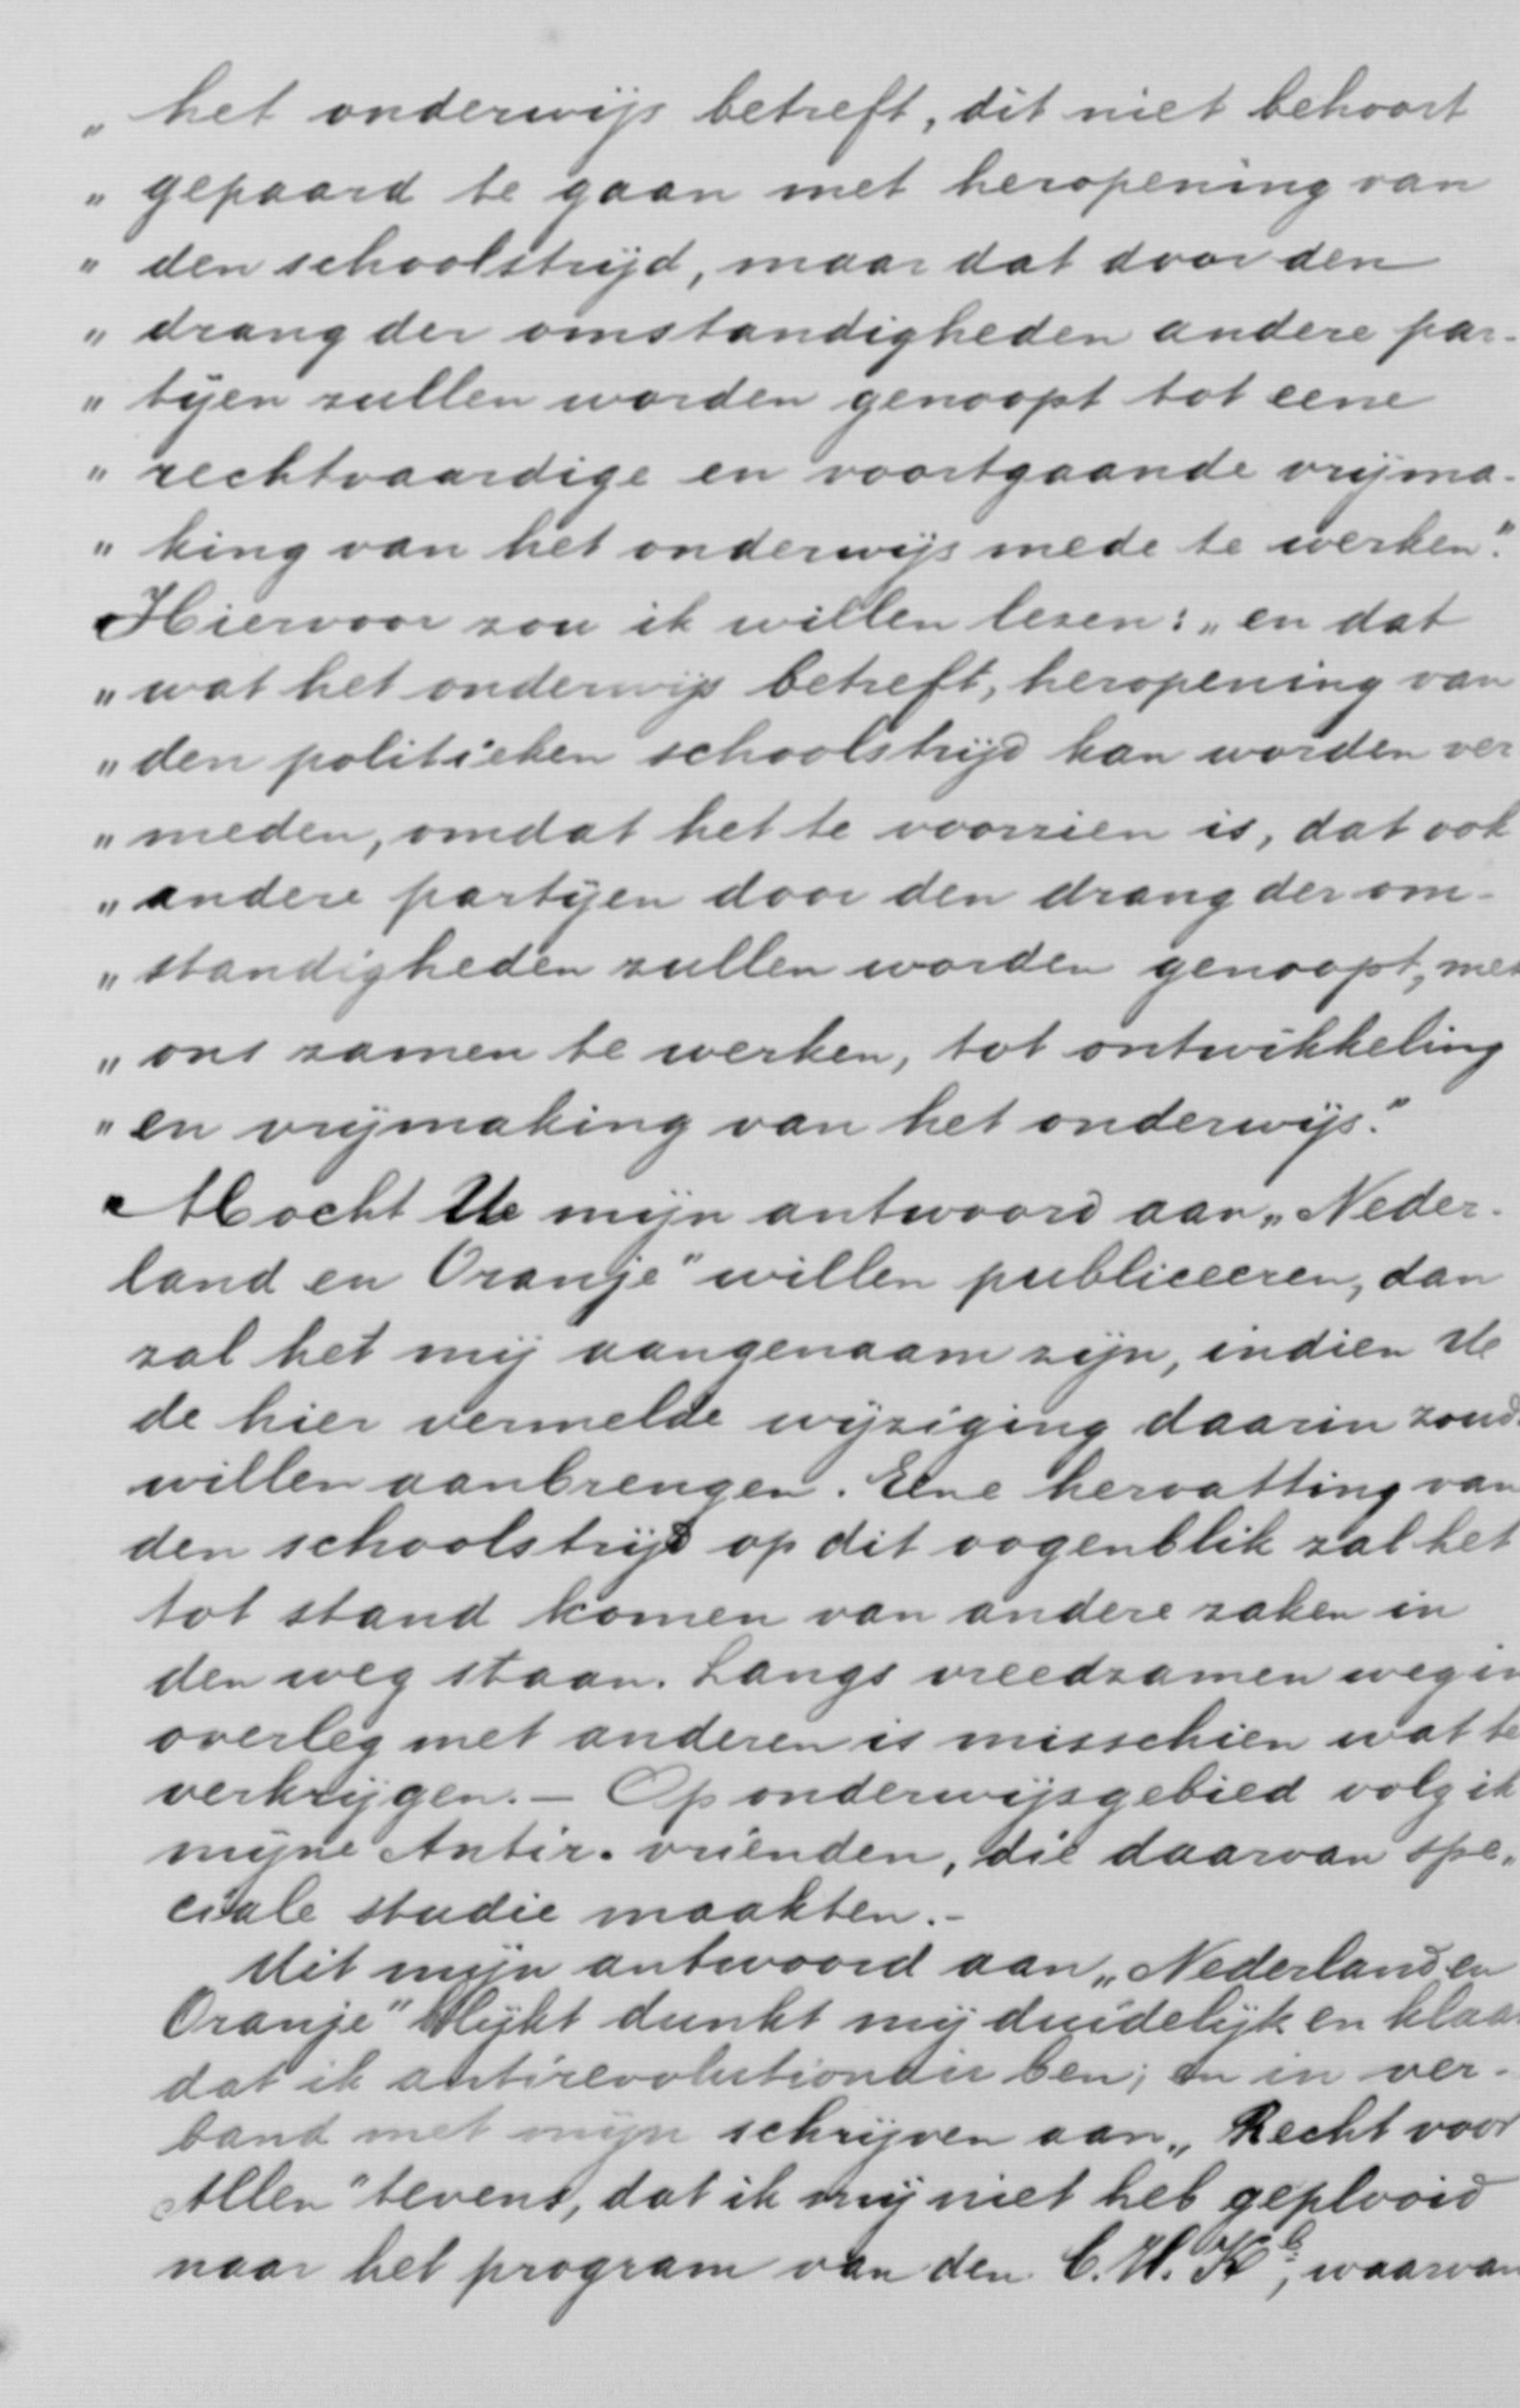 „ het onderwijs betreft, dit niet behoort
„ gepaard te gaan met heropening van
„ den schoolstrijd, maar dat door den
„ drang der omstandigheden andere par-
„ tijen zullen worden genoopt tot eene
„ rechtvaardige en voortgaande vrijma-
„ king van het onderwijs mede te werken."
Hiervoor zou ik willen lezen: „en dat
„ wat het onderwijs betreft, heropening van
„ den politieken schoolstrijd kan worden ver
„ meden, omdat het te voorzien is, dat ook
„ andere partijen door den drang der om-
„ standigheden zullen worden genoopt, met
„ ons samen te werken, tot ontwikkeling
„ en vrijmaking van het onderwijs."
Mocht Ue mijn antwoord aan „Neder-
land en Oranje" willen publiceeren, dan
zal het mij aangenaam zijn, indien Ue
de hier vermelde wijziging daarin zoud.
willen aanbrengen. Eene hervatting van
den schoolstrijd op dit oogenblik zal het
tot stand komen van andere zaken in
den weg staan. Langs vreedzamen weg in
overleg met anderen is misschien wat te
verkrijgen. — Op onderwijsgebied volg ik
mijne Antir. vrienden, die daarvan spe-
ciale studie maakten.-
Uit mijn antwoord aan „Nederland en
Oranje" blijkt dunkt mij duidelijk en klaar
dat ik antirevolutionair ben; en in ver-
band met mijn schrijven aan „Recht voor
Allen" tevens, dat ik mij niet heb geplooid
naar het program van den C. H. K, waarvan